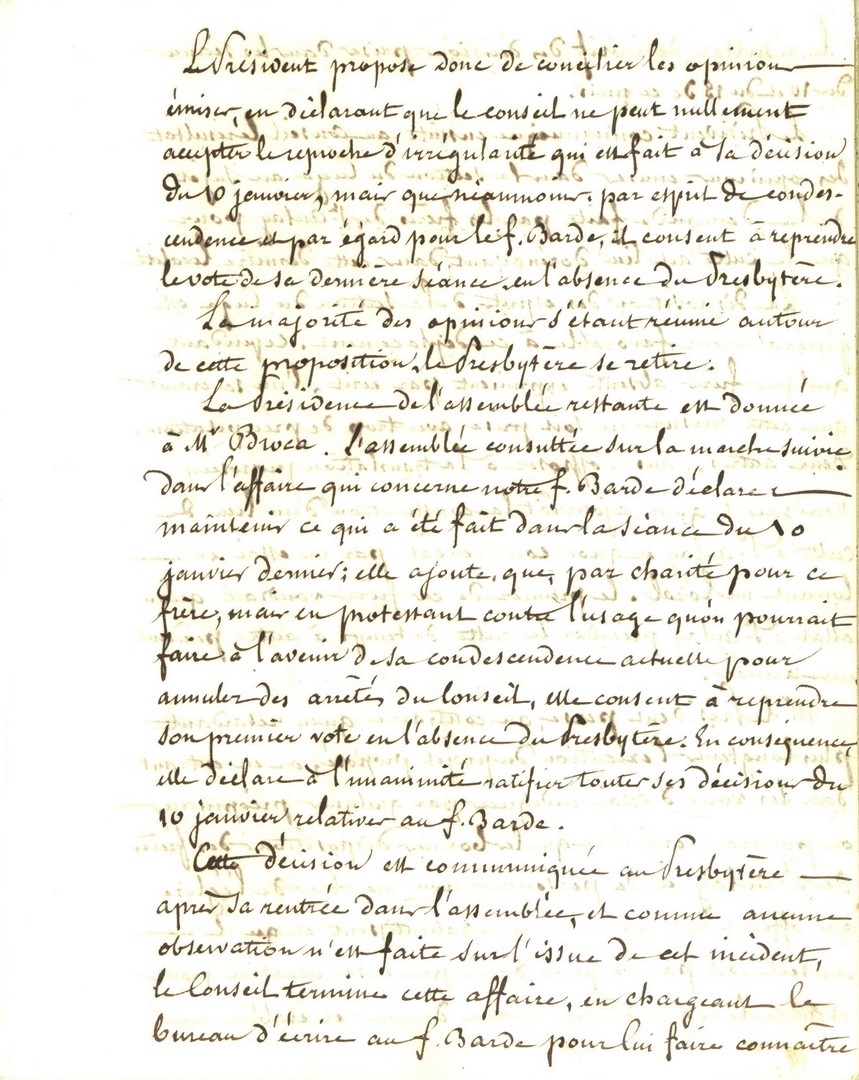 Le Président propose donc de concilier les opinions
émises, en déclarant que le conseil ne peut nullement
accepter le reproche d'irrégularité qui est fait à sa décision
du 10 janvier, mais que néanmoins, par esprit de condes-
cendence et par égard pour le f. Barde, il consent à reprendre
le vote de sa dernière séance en l'absence du Presbytère.
La majorité des opinions s'étant réunie autour
de cette proposition, le Presbytère se retire.
La Présidence de l'assemblée restante est donnée
à Mr Broca. L'assemblée consultée sur la marche suivie
dans l'affaire qui concerne notre f. Barde déclare
maintenir ce qui a été fait dans la séance du 10
janvier dernier; elle ajoute, que, par charité pour ce
frère, mais en protestant contre l'usage qu'on pourrait
faire à l'avenir de sa condescendence actuelle pour
annuler des arrêtés du Conseil, elle consent à reprendre
son premier vote en l'absence du Presbytère. En conséquence,
elle déclare à l'unanimité ratifier toutes ses décisions du
10 janvier relatives au f. Barde.
Cette décision est communiquée au Presbytère
après sa rentrée dans l'assemblée, et comme aucune
observation n'est faite sur l'issue de cet incident,
le Conseil termine cette affaire, en chargeant le
bureau d'écrire au f. Barde pour lui faire connaître